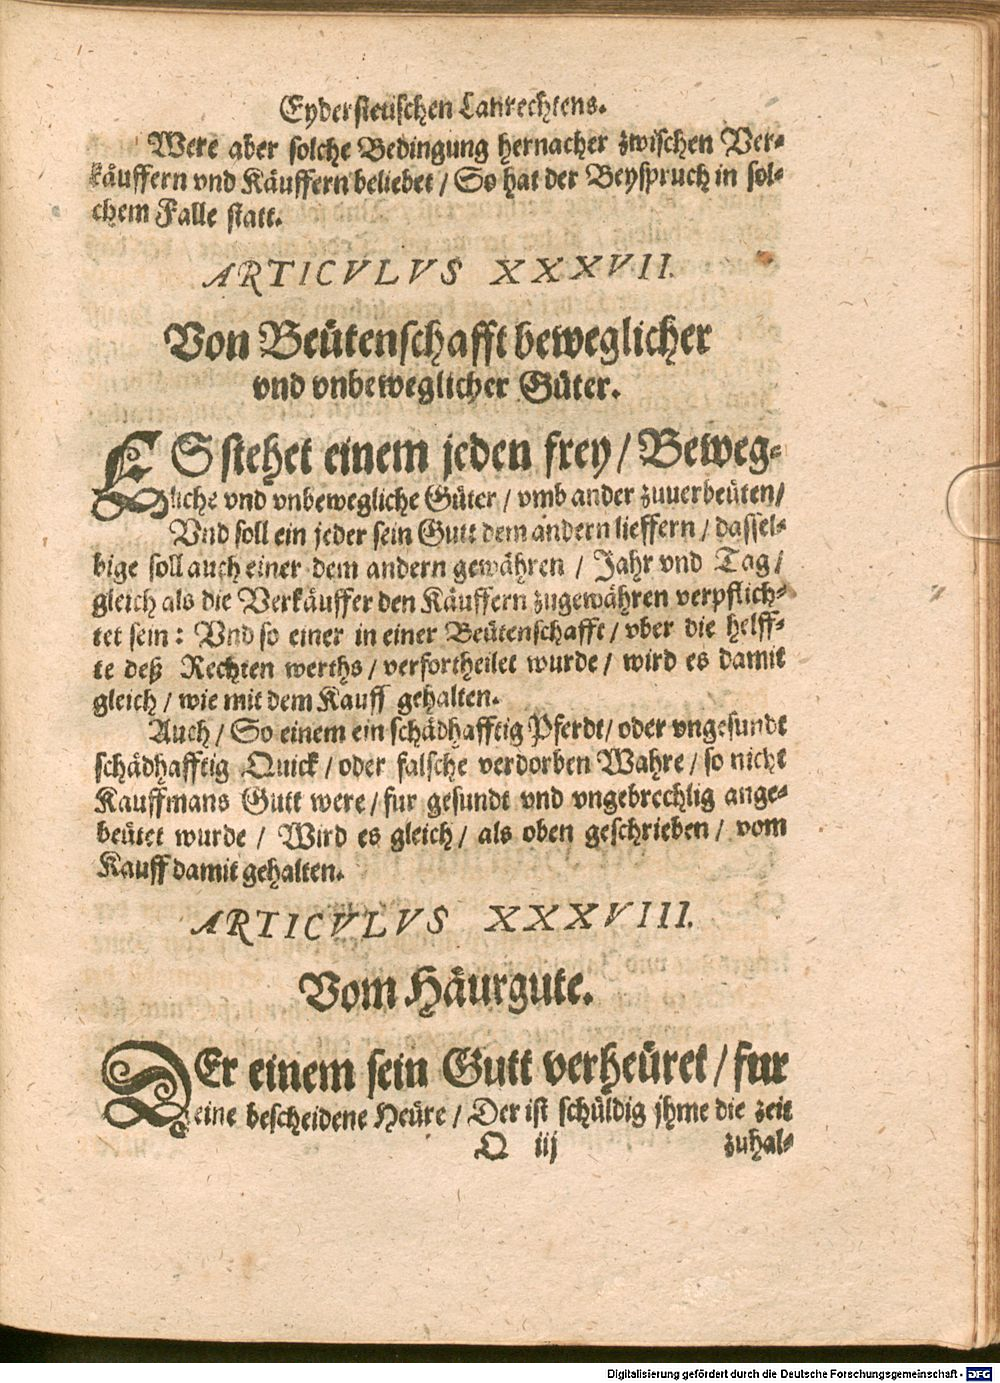 Eyderstetischen Lanrechtens.
Were aber solche Bedingung hernacher zwischen Ver-
käuffern vnd Käuffern beliebet / So hat der Beyspruch in sol-
chem Falle statt.
ARTICVLVS XXXVII.
Von Beütenschafft beweglicher
vnd vnbeweglicher Güter.
ES stehet einem jeden frey / Beweg-
liche vnd vnbewegliche Güter / vmb ander zuuerbeüten /
Vnd soll ein jeder sein Gutt dem andern lieffern / dassel-
bige soll auch einer dem andern gewähren / Jahr vnd Tag /
gleich als die Verkäuffer den Käuffern zugewähren verpflich-
tet sein: Vnd so einer in einer Beütenschafft / vber die helff-
te deß Rechten werths / verfortheilet wurde / wird es damit
gleich / wie mit dem Kauff gehalten.
Auch / So einem ein schädhafftig Pferdt / oder vngesundt
schädhafftig Quick / oder falsche verdorben Wahre / so nicht
Kauffmans Gutt were / fur gesundt vnd vngebrechlig ange-
beütet wurde / Wird es gleich / als oben geschrieben / vom
Kauff damit gehalten.
ARTICVLVS XXXVIII.
Vom Häurgute.
DEr einem sein Gutt verheüret / fur
eine bescheidene Heüre / Der ist schüldig jhme die zeit
Q iij zuhal-
Digitalisierung gefördert durch die Deutsche Forschungsgemeinschaft - DFG